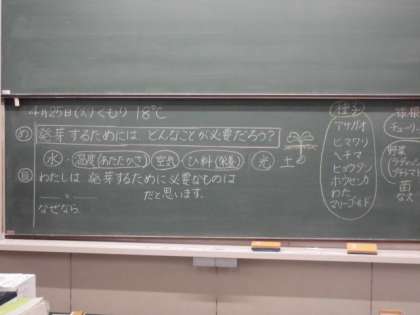 4月25日(火)くもり 18℃
め 発芽するためには どんなことが必要だろう?
水・温度(あたたかさ) 空気 ひ料(栄養) 光 土
自 わたしは 発芽するために必要なものは
だと思います。
なぜなら
種子
アサガオ
ヒマワリ
ヘチマ
ヒョウタン
ホウセンカ
わた
マリーゴールド
球根
野菜
苗
なえ